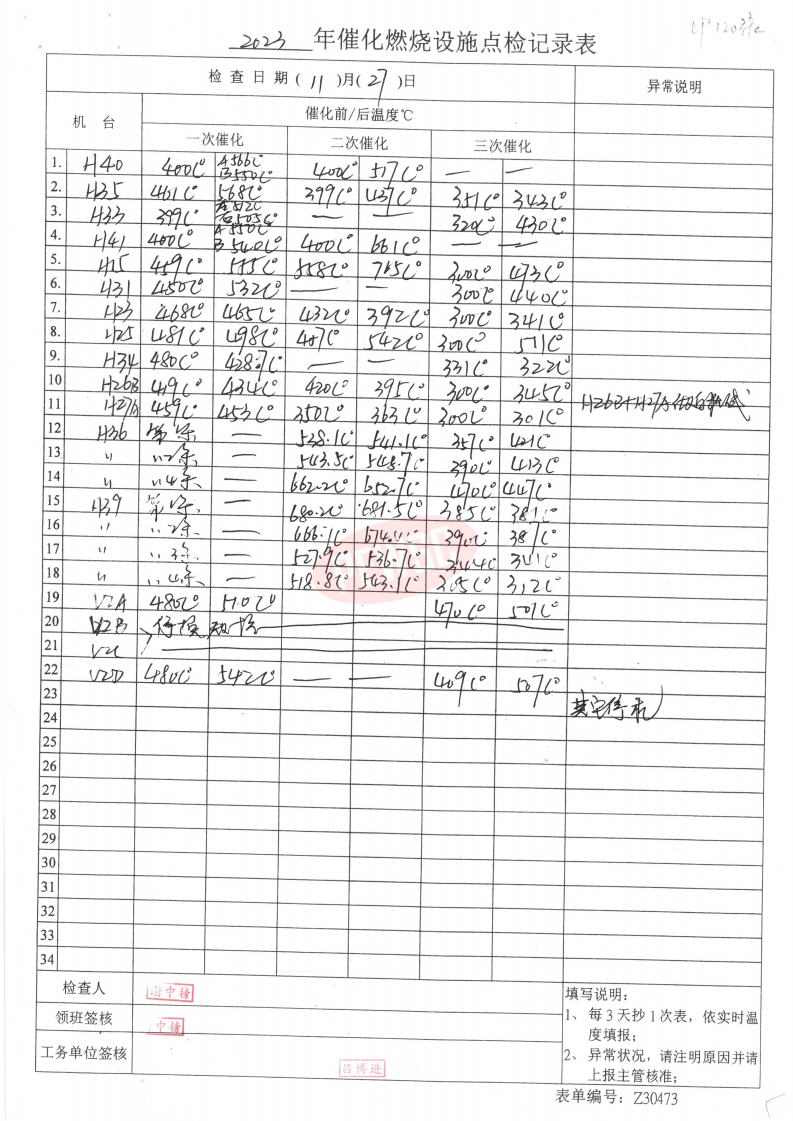 2023 年催化燃烧设施点检记录表
检 查 日 期 ( 11 )月( 27 )日 异常说明
机 台 催化前/后温度℃
一次催化 二次催化 三次催化
1. H40 400C° A 566C° B 550C° 400C° 517C° — —
2. H35 461C° 568C° 399C° 437C° 351C° 343C°
3. H33 399C° — — 320C° 430C°
4. H41 400C° A 550C° B 540C° 400C° 661C° — —
5. H15 459C° 555C° 558C° 765C° 300C° 473C°
6. H31 450C° 532C° — — 300C° 440C°
7. H23 468C° 465C° 432C° 392C° 300C° 341C°
8. H25 481C° 498C° 407C° 542C° 300C° 511C°
9. H34 480C° 428.7C° — — 331C° 322C°
10 H26B 419C° 434C° 420C° 395C° 300C° 345C°
11 H27A 459C° 453C° 350C° 363C° 300C° 301C°
12 H36 — 538.1C° 541.1C° 357C° 421C°
13 〃 — 543.5C° 548.7C° 390C° 413C°
14 〃 — 662.2C° 652.7C° 470C° 447C°
15 H39 — 680.2C° 681.5C° 385C° 381C°
16 〃 — 666.1C° 390C° 387C°
17 〃 — 527.9C° 536.7C° 344C° 341C°
18 〃 — 518.8C° 543.1C° 305C° 312C°
19 V2A 480C° 510C° 470C° 501C°
20 V2B
21 V2C
22 V2D 480C° 542C° — — 409C° 507C°
23
24
25
26
27
28
29
30
31
32
33
34
检查人
领班签核
工务单位签核 吕博进
填写说明：
1、 每 3 天抄 1 次表，依实时温
度填报；
2、 异常状况，请注明原因并请
上报主管核准；
表单编号：Z30473